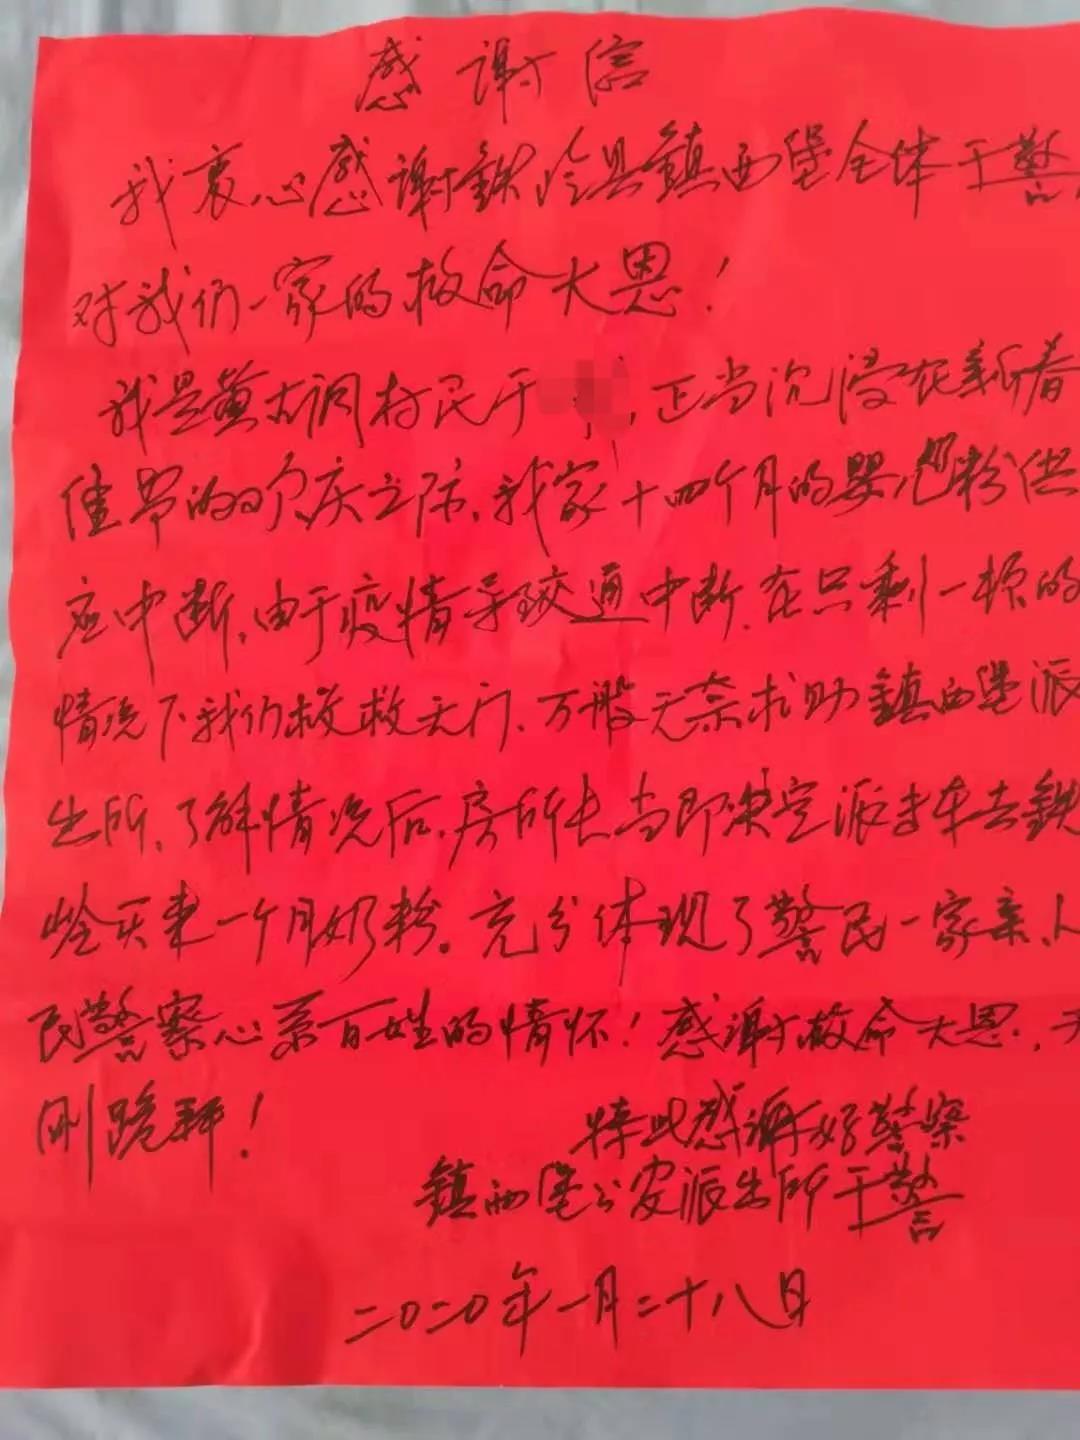 感谢信
我衷心感谢鉄冷县鎮西堡全体干警
对我们一家的救命大恩！
我是黄古洞村民于，正当沉浸在新春
佳节的欢庆之际，我家十四个月的婴儿奶粉供
应中断，由于疫情导致交通中断，在只剩一顿的
情况下我们救救无门，万般无奈求助鎮西堡派
出所，了解情况后，房所长当即决定派专车去鉄
岭买来一个月奶粉。充分体现了警民一家亲，人
民警察心系百姓的情怀！感谢救命大恩，于
刚跪拜！
特此感谢好警察
鎮西堡公安派出所干警
二〇二〇年一月二十八日